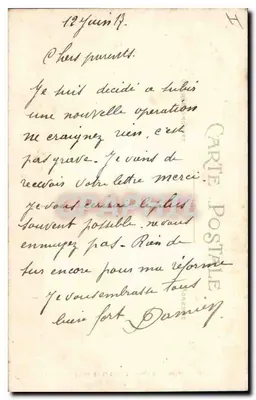 12 Juin 17.
I
Chers parents.
Je suis décidé a subir
une nouvelle operation
ne craignez rien, c'est
pas grave. Je viens de
recevoir votre lettre merci
Je vous ecrirai le plus
souvent possible, ne vous
ennuyez pas - Rien de
sur encore pour ma réforme
Je vous embrasse tous
bien fort Damien
CARTE POSTALE